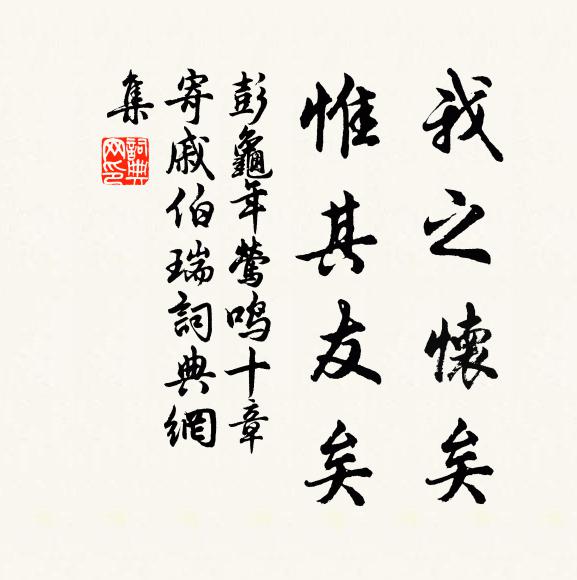 我之懷矣
惟其友矣
彭龜年鶯鳴十章
寄戚伯瑞詞典網
集
詞典網印